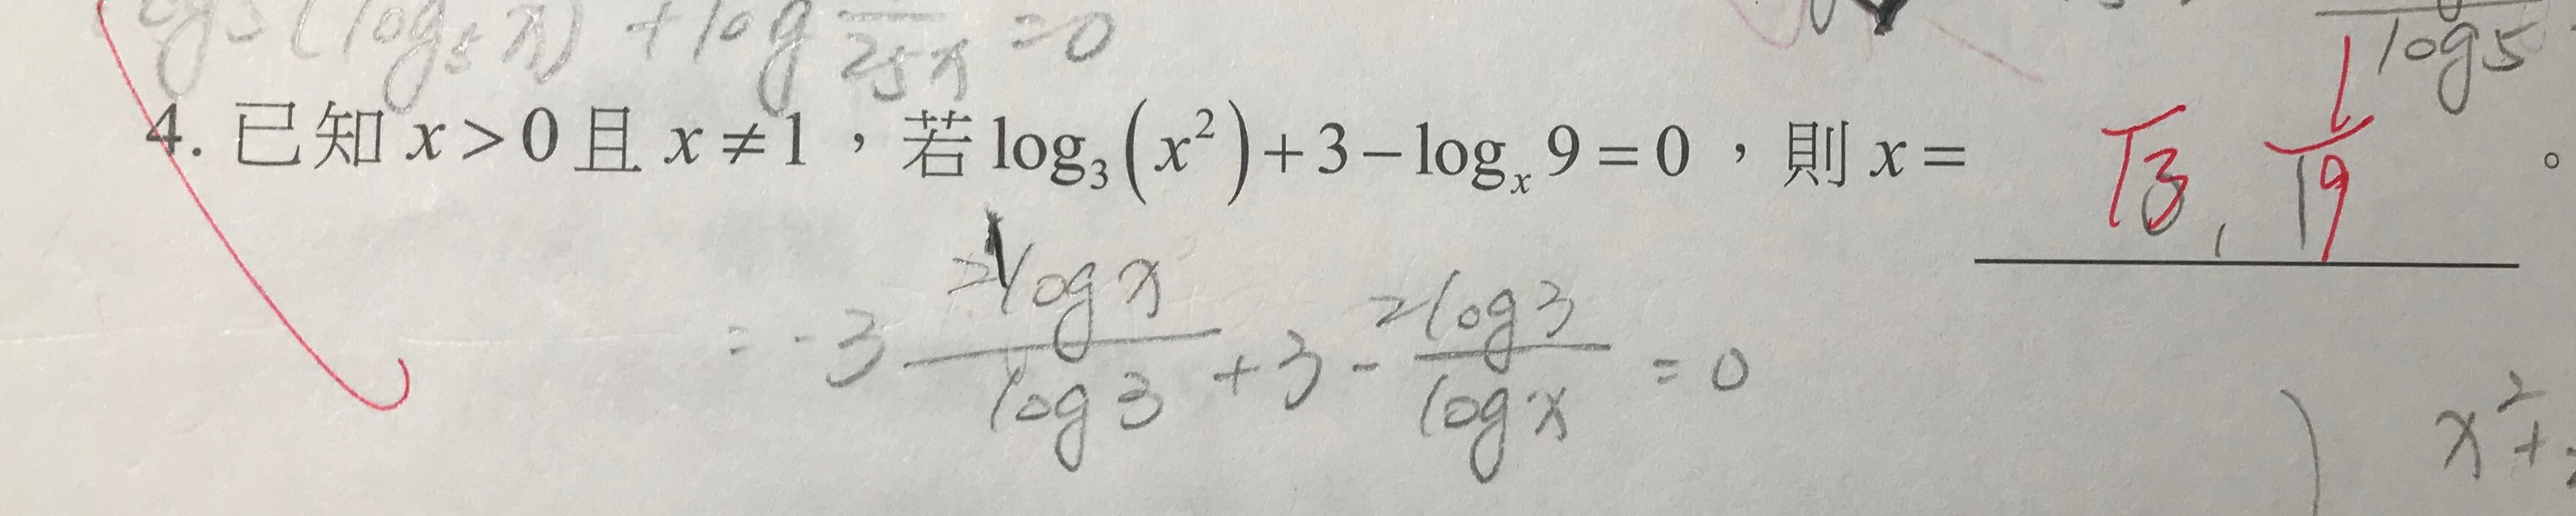 (log₅x) + log 1/25x = 0
log5
4. 已知 x > 0 且 x ≠ 1，若 log₃(x²) + 3 − logₓ9 = 0，則 x = √3, 1/9。
= -3 2logx/log3 + 3 - 2log3/logx = 0
x² +